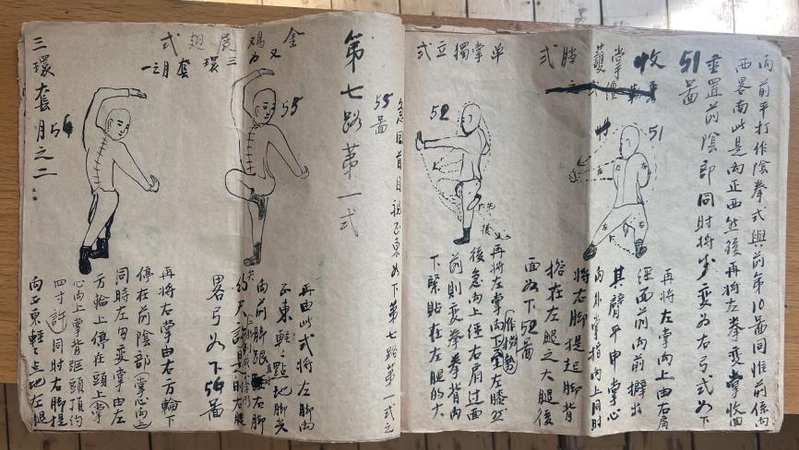 向前平打作陰拳式與前第10圖同惟前係向
西畧南此是向正西然後再將左拳變掌收回
垂置前陰部同時將步變為右弓式如下
51圖
收
掌
式
51
再將左掌向上由右肩
經面前向前擗出
其臂平申掌心
向外掌指向上同時
將右脚提起脚背
搭在左腿之大腿後
面如下52圖
单掌獨立式
52
先
後
再將左掌向上至左膝然
後急向上經右肩过面
前則变拳拳背向
下緊貼在左腿的大
急回前目視正東如下第七路第一式之
55圖
第七路第一式
金鸡展翅式
又为三環套月之一
55
再由此式將左脚向
正東輕々點地脚尖
向前脚跟右脚
畧弓如下54圖
再將右掌由右方輪下
停在前陰部掌心向
同時左勾变掌由左
方輪上停在頭上掌
心向上掌背距頭頂約
四寸許同时右脚提
向正東軽々点地左腿
三環套月之二
54